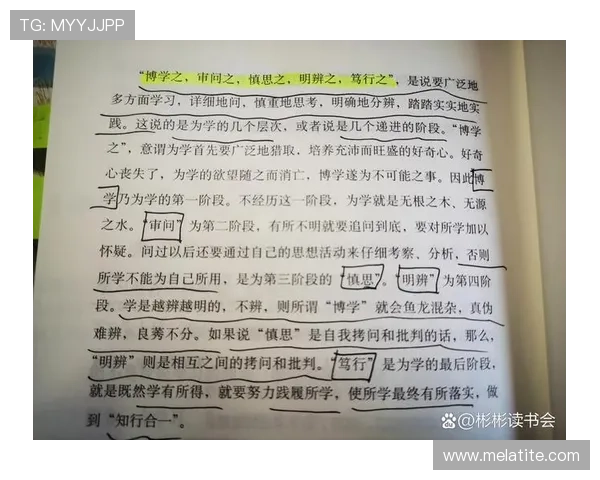 TG: MYYJJPP
“博学之，审问之，慎思之，明辨之，笃行之”，是说要广泛地
多方面学习，详细地问，慎重地思考，明确地分辨，踏踏实实地实
践。这说的是为学的几个层次，或者说是几个递进的阶段。“博学
之”，意谓为学首先要广泛地猎取，培养充沛而旺盛的好奇心。好奇
心丧失了，为学的欲望随之而消亡，博学遂为不可能之事。因此博
学乃为学的第一阶段。不经历这一阶段，为学就是无根之木、无源
之水。“审问”为第二阶段，有所不明就要追问到底，要对所学加以
怀疑。问过以后还要通过自己的思想活动来仔细考察、分析，否则
所学不能为自己所用，是为第三阶段的“慎思”。“明辨”为第四阶
段。学是越辨越明的，不辨，则所谓“博学”就会鱼龙混杂，真伪
难辨，良莠不分。如果说“慎思”是自我拷问和批判的话，那么，
“明辨”则是相互之间的拷问和批判。“笃行”是为学的最后阶段，
就是既然学有所得，就要努力践履所学，使所学最终有所落实，做
到“知行合一”。
@彬彬读书会
www.melatite.com